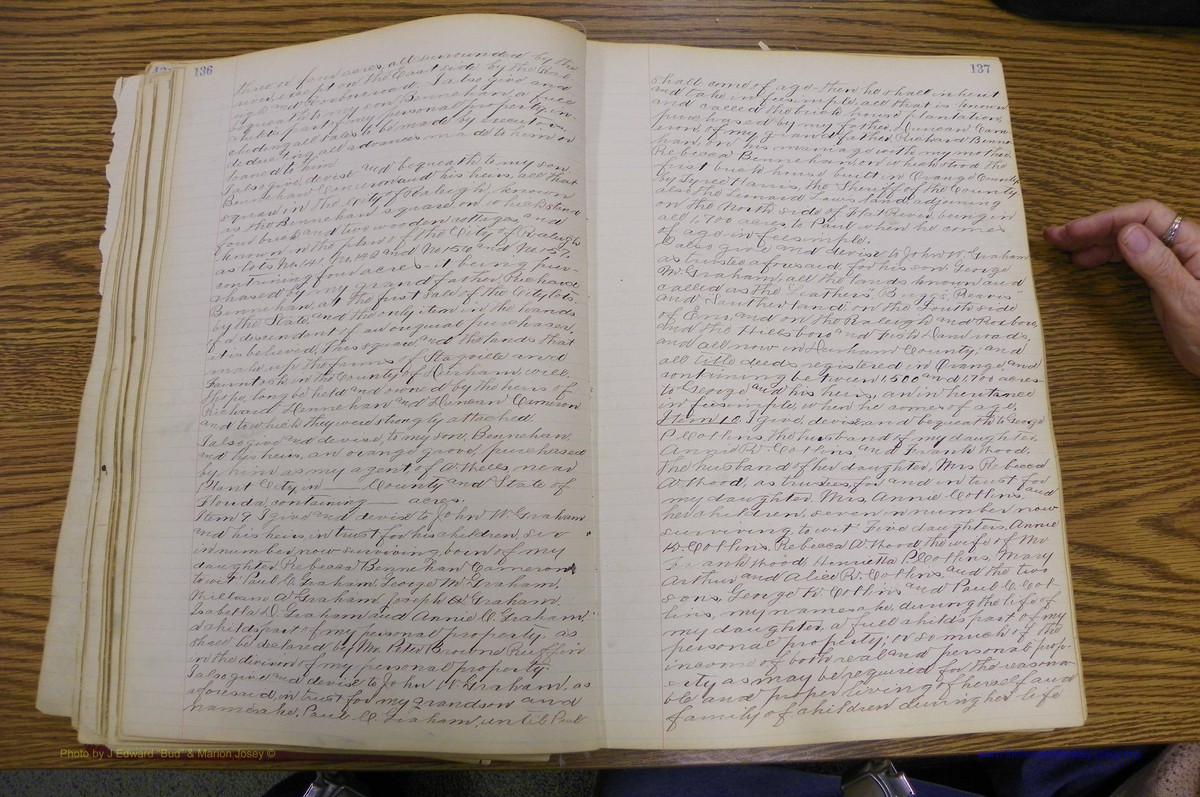 136
three or four acres, all surrounded by the
river, except on the East side by the Rail
I also give and
bequeath to my son Bennehan, a full
child's part of my personal property, in-
cluding all sales to be made by executors,
deducting all advances made to him or
loaned to him.
I also give, devise and bequeath to my son
Bennehan Cameron and his heirs, all that
square in the City of Raleigh, known
as the Bennehan square on which stand
four brick and two wooden cottages, and
known in the plan of the City of Raleigh
as lots No. 141, No. 142 and No. 156 and No. 157,
containing four acres - it being pur-
chased by my grandfather Richard
Bennehan, at the first sale of the City lots
by the State, and the only item in the hands
of a descendant of an original purchaser,
it is believed. This square, and the lands that
make up the farms of Stagville and
Fairntosh in the County of Durham, will
I hope, long be held and owned by the heirs of
Richard Bennehan and Duncan Cameron
and to which they were strongly attached.
I also give and devise, to my son, Bennehan,
and his heirs, an orange grove, purchased
by him as my agent of A. Theus, near
Plant City, in ___ County and State of
Florida, containing ___ acres.
Item 9. I give and devise to John W. Graham
and his heirs, in trust for his children, six
in number now surviving, born of my
daughter Rebecca Bennehan Cameron,
to wit: Paul C. Graham, George M. Graham,
William A. Graham, Joseph Graham,
Isabella D. Graham and Annie C. Graham,
a child's part of my personal property, as
shall be declared by Mr. Peter Browne Ruffin
in the division of my personal property.
I also give and devise to John W. Graham, as
aforesaid, in trust for my grandson and
namesake, Paul C. Graham, until Paul
137
shall come of age - then he shall inherit
and take in fee simple, all that is known
and called the brick house plantation,
purchased by my father, Duncan Cam-
eron, of my grandfather, Richard Benne-
han, on his marriage with my mother,
Rebecca Bennehan, on which stood the
first brick house built in Orange County
by Tyree Harris, the Sheriff of the County
also the Leonard Laws land, adjoining
on the North side of Flat River, being in
all 1,700 acres, to Paul when he comes
of age in fee simple.
I also give and devise to John W. Graham
as trustee aforesaid, for his son George
M. Graham, all the lands known and
called as the Peoris
and Southerland on the South side
of Eno, and on the Raleigh and Roxboro,
and the Hillsboro and Fish Dam roads,
and all now in Durham County, and
all title deeds registered in Orange, and
containing between 1,500 and 1,700 acres
to George and his heirs, an inheritance
in fee simple, when he comes of age.
Item 10. I give, devise and bequeath to George
P. Collins, the husband of my daughter
Annie R. Collins, and Frank Wood,
the husband of her daughter, Mrs. Rebecca
A. Wood, as trustees, for and in trust for
my daughter Mrs. Annie Collins, and
her children, seven in number now
surviving, to wit: Five daughters, Annie
K. Collins, Rebecca A. Wood, the wife of Mr.
Frank Wood, Henrietta P. Collins, Mary
Arthur and Alice R. Collins, and the two
sons, George K. Collins and Paul C. Col-
lins, my namesake, during the life of
my daughter, a full child's part of my
personal property; or so much of the
income of both real and personal prop-
erty as may be required for the reasona-
ble and proper living of herself and
family of children during her life
Photo by J Edward "Bud" & Marion Josey ©